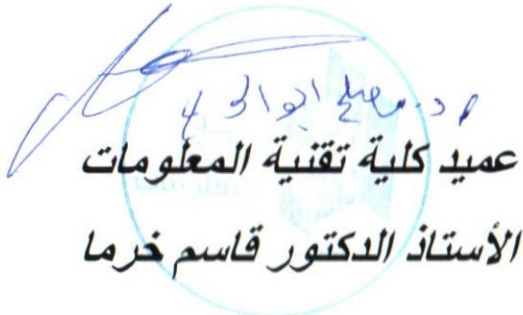 د. مصلح ابو
عميد كلية تقنية المعلومات
الأستاذ الدكتور قاسم خرما